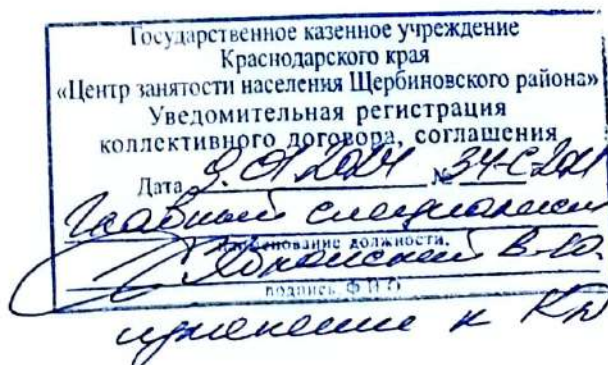 Государственное казенное учреждение
Краснодарского края
«Центр занятости населения Щербиновского района»
Уведомительная регистрация
коллективного договора, соглашения
Дата 9.01.2024 № 34-С-2021
Главный специалист
наименование должности,
В.Ю.
подпись, Ф.И.О
изменение к КД